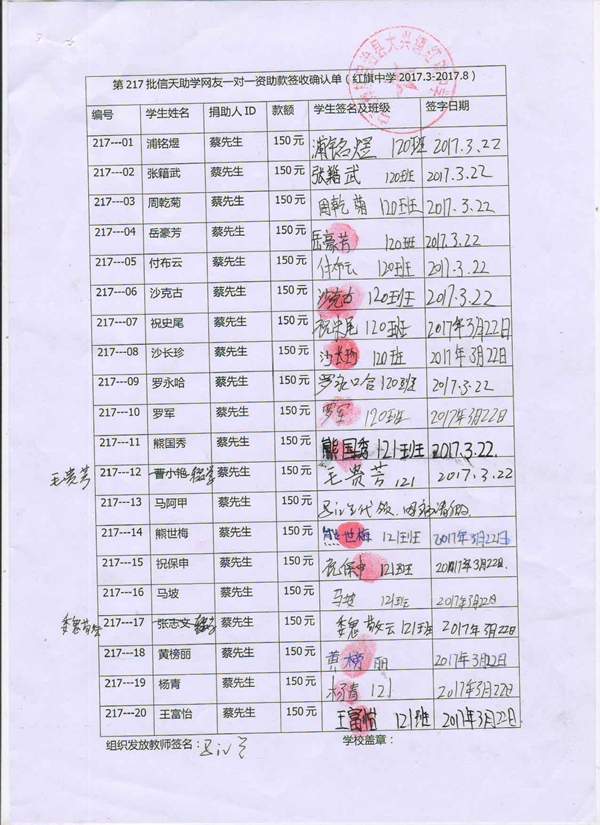 第217批信天助学网友一对一资助款签收确认单（红旗中学2017.3-2017.8）
编号 学生姓名 捐助人ID 款额 学生签名及班级 签字日期
217---01 浦铭煜 蔡先生 150元 浦铭煜 120班 2017.3.22
217---02 张籍武 蔡先生 150元 张籍武 120班 2017.3.22
217---03 周乾菊 蔡先生 150元 周乾菊 120班 2017.3.22
217---04 岳豪芳 蔡先生 150元 岳豪芳 120班 2017.3.22
217---05 付布云 蔡先生 150元 付布云 120班 2017.3.22
217---06 沙克古 蔡先生 150元 沙克古 120班 2017.3.22
217---07 祝史尾 蔡先生 150元 祝史尾 120班 2017年3月22日
217---08 沙长珍 蔡先生 150元 沙长珍 120班 2017年3月22日
217---09 罗永哈 蔡先生 150元 罗永哈 120班 2017.3.22
217---10 罗军 蔡先生 150元 罗军 120班 2017年3月22日
217---11 熊国秀 蔡先生 150元 熊国秀 121班 2017.3.22.
王贵芳 217---12 曹小艳 蔡先生 150元 王贵芳 121 2017.3.22
217---13 马阿甲 蔡先生 150元
217---14 熊世梅 蔡先生 150元 熊世梅 121班 2017年3月22日
217---15 祝保申 蔡先生 150元 祝保申 121班 2017年3月22日.
217---16 马坡 蔡先生 150元 马坡 121班 2017年3月22日
217---17 张志文 蔡先生 150元 121班 2017年3月22日
217---18 黄榜丽 蔡先生 150元 黄榜丽 2017年3月22日
217---19 杨青 蔡先生 150元 杨青 121 2017年3月22日
217---20 王富怡 蔡先生 150元 王富怡 121班 2017年3月22日
组织发放教师签名： 学校盖章：